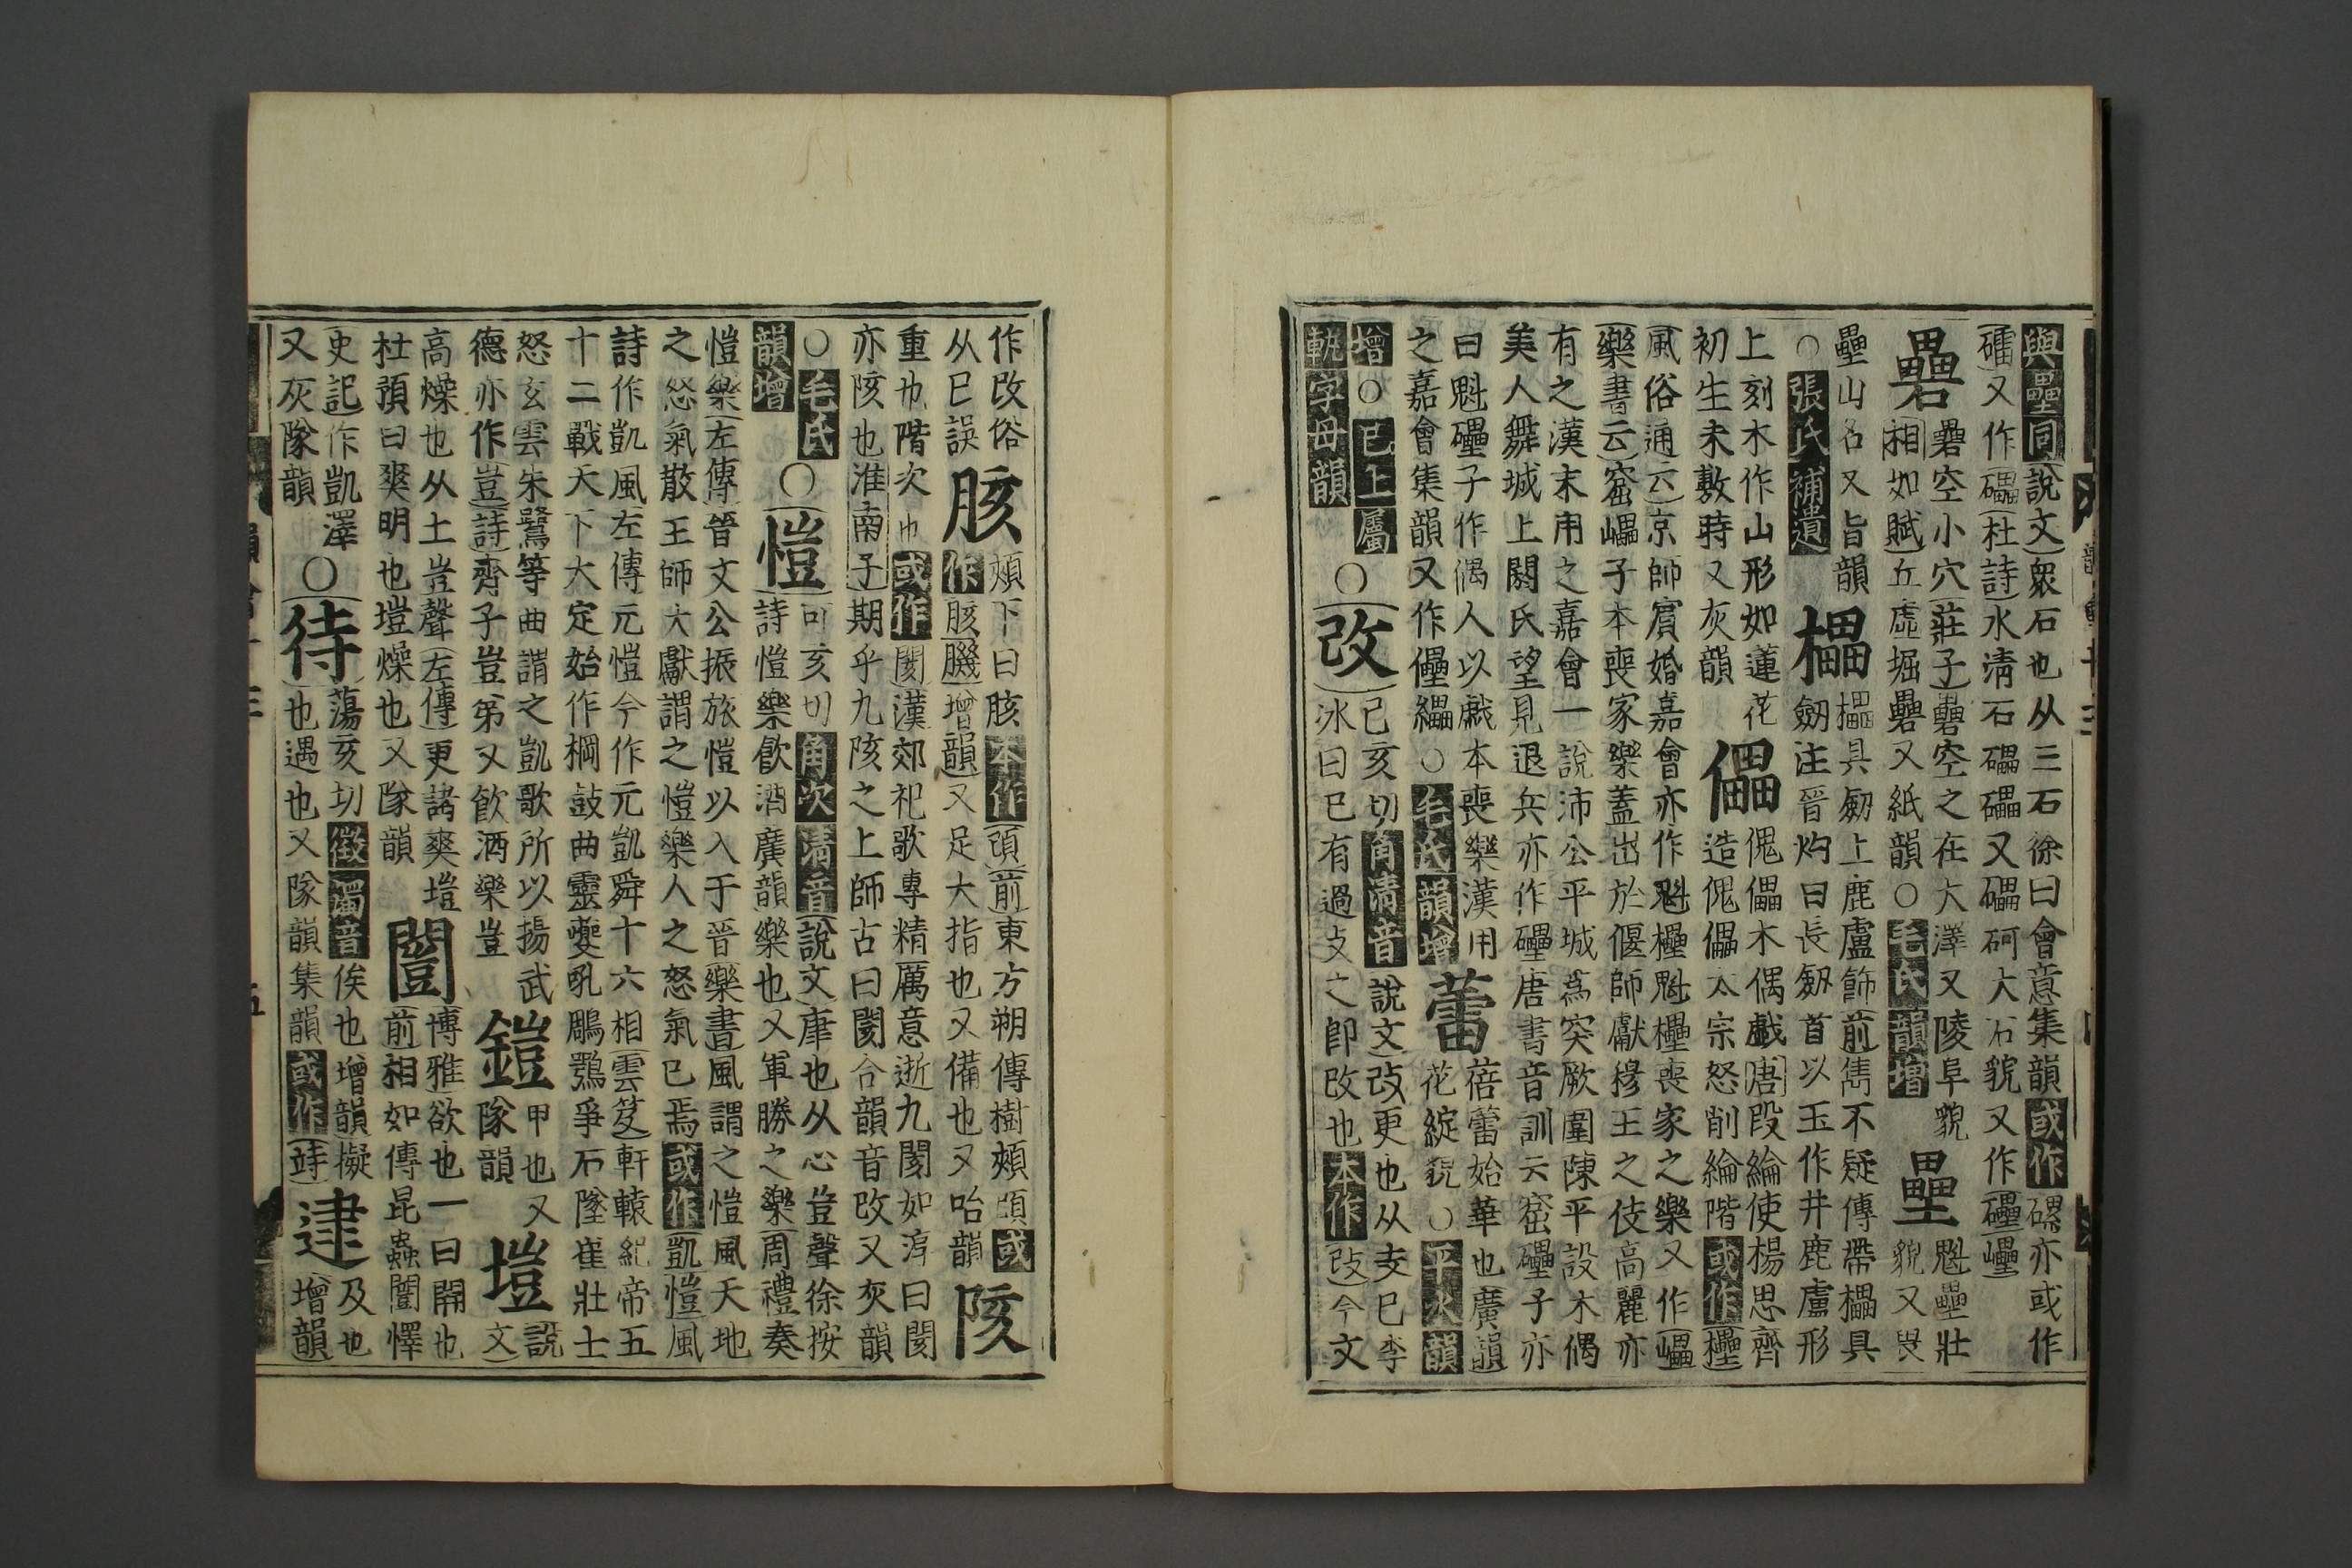 與壘同說文衆石也从三石徐曰會意集韻或作磥亦或作
礌又作礧杜詩水淸石礧礧又礧砢大石貌又作礨㠥
礨
礨空小穴莊子礨空之在大澤又陵阜貌
相如賦丘虛堀礨又紙韻○毛氏韻增
壘
魁壘壯
貌又畏
壘山名又旨韻
○張氏補遺
櫑
櫑具劒上鹿盧飾前雋不疑傳帶櫑具
劒注晉灼曰長劒首以玉作井鹿盧形
上刻木作山形如蓮花
初生未敷時又灰韻
儡
傀儡木偶戲唐段綸使楊思齊
造傀儡太宗怒削綸階或作櫑
風俗通云京師賓婚嘉會亦作魁櫑魁櫑喪家之樂又作㠥
樂書云窟㠥子本喪家樂蓋出於偃師獻穆王之伎高麗亦
有之漢末用之嘉會一說沛公平城爲突厥圍陳平設木偶
美人舞城上閼氏望見退兵亦作礧唐書音訓云窟礧子亦
曰魁礧子作偶人以戲本喪樂漢用
之嘉會集韻又作儽纝○毛氏韻增
蕾
蓓蕾始華也廣韻
花綻貌○平水韻
增○已上屬
軌字母韻
○改
已亥切角清音說文改更也从攴已李
冰曰已有過攴之卽改也本作攺今文
作改俗
从巳誤
胲
頰下曰胲本作頦前東方朔傳樹頰頦或
作胲䐩增韻又足大指也又備也又咍韻
陔
重也階次也或作閡漢郊祀歌專精厲意逝九閡如淳曰閡
亦陔也淮南子期乎九陔之上師古曰閡合韻音改又灰韻
○毛氏
韻增
○愷
可亥切角次清音說文康也从心豈聲徐按
詩愷樂飮酒廣韻樂也又軍勝之樂周禮奏
愷樂左傳晉文公振旅愷以入于晉樂書風謂之愷風天地
之怒氣散王師大獻謂之愷樂人之怒氣已焉或作凱愷風
詩作凱風左傳元愷今作元凱舜十六相雲笈軒轅紀帝五
十二戰天下大定始作棡鼓曲靈夔吼鵰鶚爭石墜崔壯士
怒玄雲朱鷺等曲謂之凱歌所以揚武
德亦作豈詩齊子豈弟又飮酒樂豈
鎧
甲也又
隊韻
塏
說
文
高燥也从土豈聲左傳更諸爽塏
杜預曰爽明也塏燥也又隊韻
闓
博雅欲也一曰開也
前相如傳昆蟲闓懌
史記作凱澤
又灰隊韻
○待
蕩亥切徵濁音俟也增韻擬
也遇也又隊韻集韻或作㣥
逮
及也
增韻